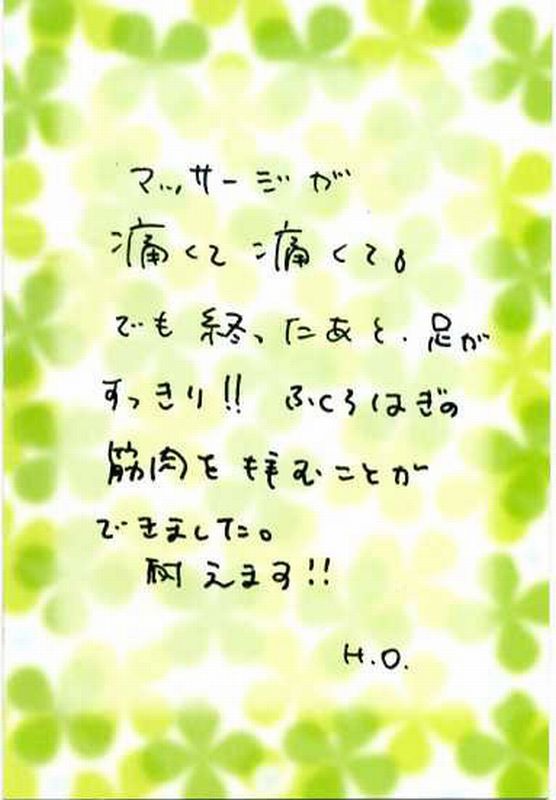 マッサージが
痛くて痛くて。
でも終ったあと、足が
すっきり!! ふくらはぎの
筋肉を拝むことが
できました。
耐えます!!
H.O.